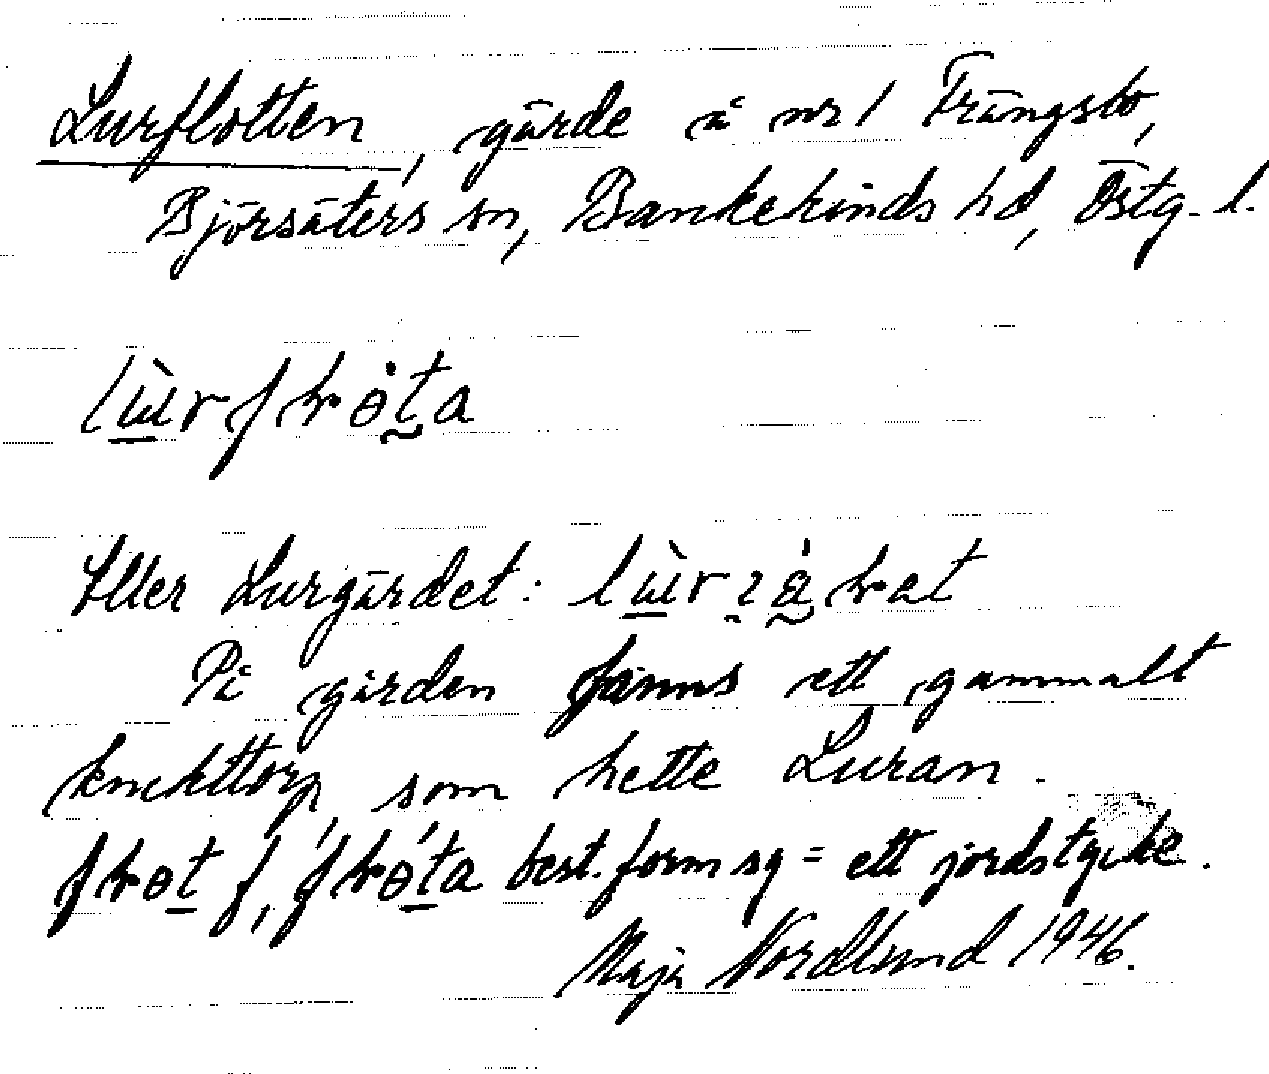 Lurflotten, gärde å nr 1 Trängsbo,
Björsäters sn, Bankekinds hd, Östg. l.
Eller Lurgärdet:
På gården finns ett gammalt
knekttorp som hette Luran.
best. form sg = ett jordstycke.
Maja Nordlund 1946.